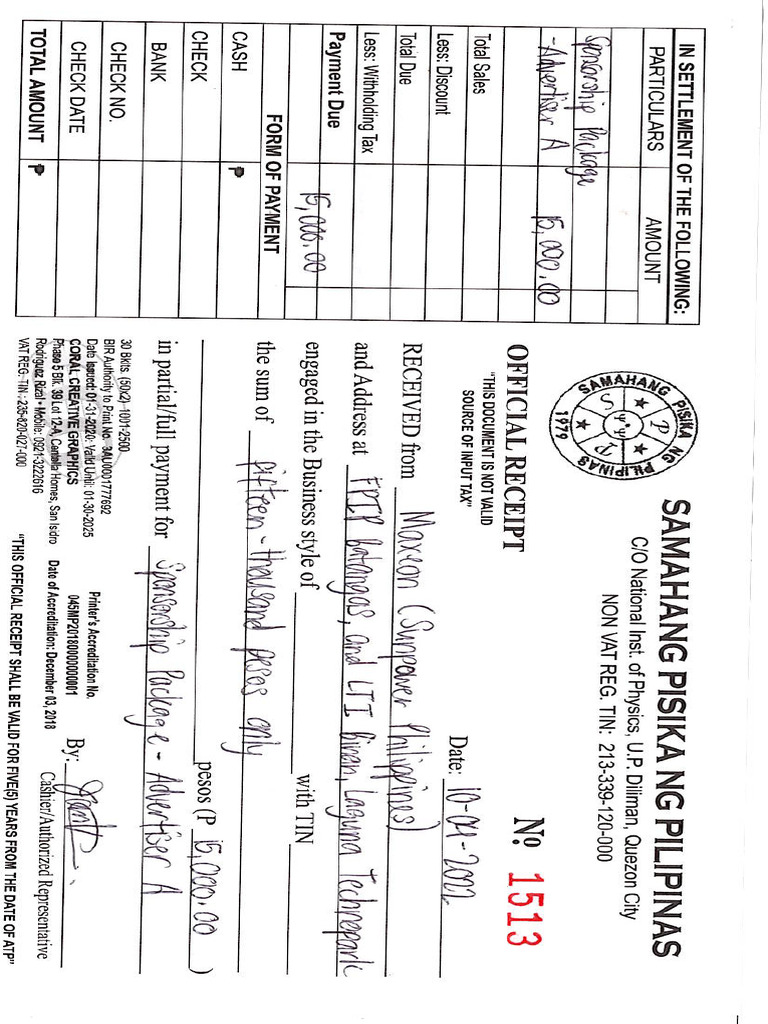 IN SETTLEMENT OF THE FOLLOWING:
PARTICULARS AMOUNT
Sponsorship Package
- Advertiser A 15,000.00
Total Sales
Less: Discount
Total Due
Less: Withholding Tax
Payment Due 15,000.00
FORM OF PAYMENT
CASH ₱
CHECK
BANK
CHECK NO.
CHECK DATE
TOTAL AMOUNT ₱
SAMAHANG PISIKA NG PILIPINAS
1979
S P P
SAMAHANG PISIKA NG PILIPINAS
C/O National Inst. of Physics, U.P. Diliman, Quezon City
NON VAT REG. TIN: 213-339-120-000
OFFICIAL RECEIPT
"THIS DOCUMENT IS NOT VALID
SOURCE OF INPUT TAX"
No. 1513
Date: 10-04-2022
RECEIVED from Maxeon (Sunpower Philippines)
and Address at FPIP Batangas, and LTI Binan, Laguna Technopark
engaged in the Business style of with TIN
the sum of fifteen-thousand pesos only
pesos (P 15,000.00 )
in partial/full payment for Sponsorship Package - Advertiser A
30 Bklts. (50x2)-1001-2500
BIR Authority to Print No. 3AU0001777692
Date Issued: 01-31-2020; Valid Until: 01-30-2025
CORAL CREATIVE GRAPHICS
Phase 5 Blk. 39 Lot 12-A, Centella Homes, San Isidro
Rodriguez Rizal • Mobile: 0921-3222616
VAT REG. TIN: 235-820-027-000
Printer's Accreditation No.
045MP20180000000001
Date of Accreditation: December 03, 2018
By:
Cashier/Authorized Representative
"THIS OFFICIAL RECEIPT SHALL BE VALID FOR FIVE(5) YEARS FROM THE DATE OF ATP"